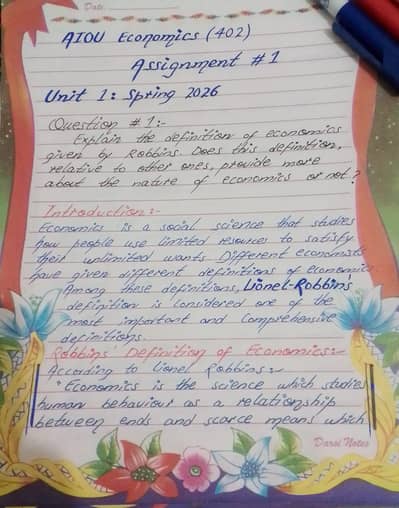 Date:
AIOU Economics (402)
Assignment #1
Unit 1: Spring 2026
Question # 1:-
Explain the definition of economics
given by Robbins. Does this definition,
relative to other ones, provide more
about the nature of economics or not?
Introduction:-
Economics is a social science that studies
how people use limited resources to satisfy
their unlimited wants Different economists
have given different definitions of economics.
Among these definitions, Lionel-Robbins
definition is considered one of the
most important and Comprehensive
definitions.
Robbins' Definition of Economics:-
According to Lionel Robbins:-
"Economics is the science which studies
human behaviour as a relationship
between ends and scarce means which
Darsi Notes